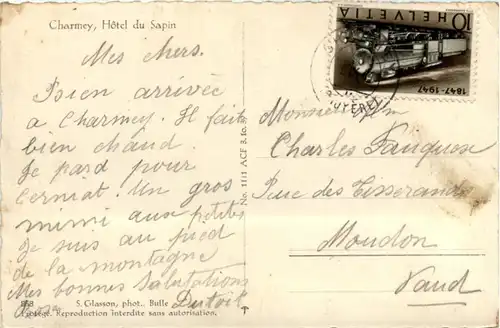 Charmey, Hôtel du Sapin
Mes chers.
Bien arrivée
a Charmey. Il fait
bien chaud.
Je pard pour
Cerniat. Un gros
mimi aux petites
Je suis au pied
de la montagne
Mes bonnes salutations
Dutoit
S. Glasson, phot., Bulle
Reproduction interdite sans autorisation.
No. 1111 ACF
HELVETIA 10
1847-1947
Monsieur
Charles
Rue des Tisserands
Moudon
Vaud